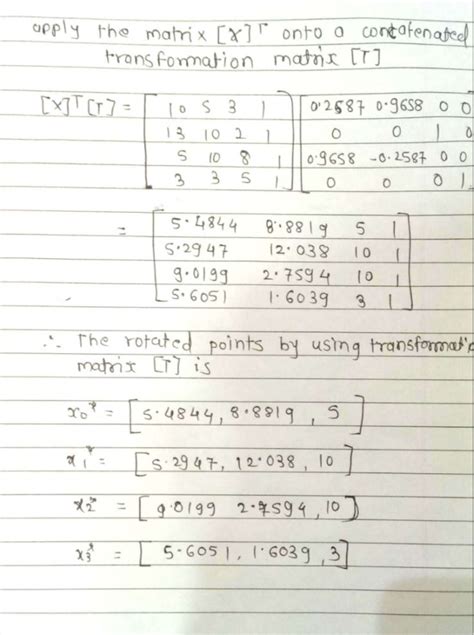 apply the matrix [X]ᵀ onto a contatenated
transformation matrix [T]
[X]ᵀ[T] = [10 5 3 1] [0.2587 0.9658 0 0]
[13 10 2 1] [0 0 1 0]
[5 10 8 1] [0.9658 -0.2587 0 0]
[3 3 5 1] [0 0 0 1]
= [5.4844 8.8819 5 1]
[5.2947 12.038 10 1]
[9.0199 2.7594 10 1]
[5.6051 1.6039 3 1]
∴ The rotated points by using transformatic
matrix [T] is
x₀* = [5.4844, 8.8819, 5]
x₁* = [5.2947, 12.038, 10]
x₂* = [9.0199 2.7594, 10]
x₃* = [5.6051, 1.6039, 3]